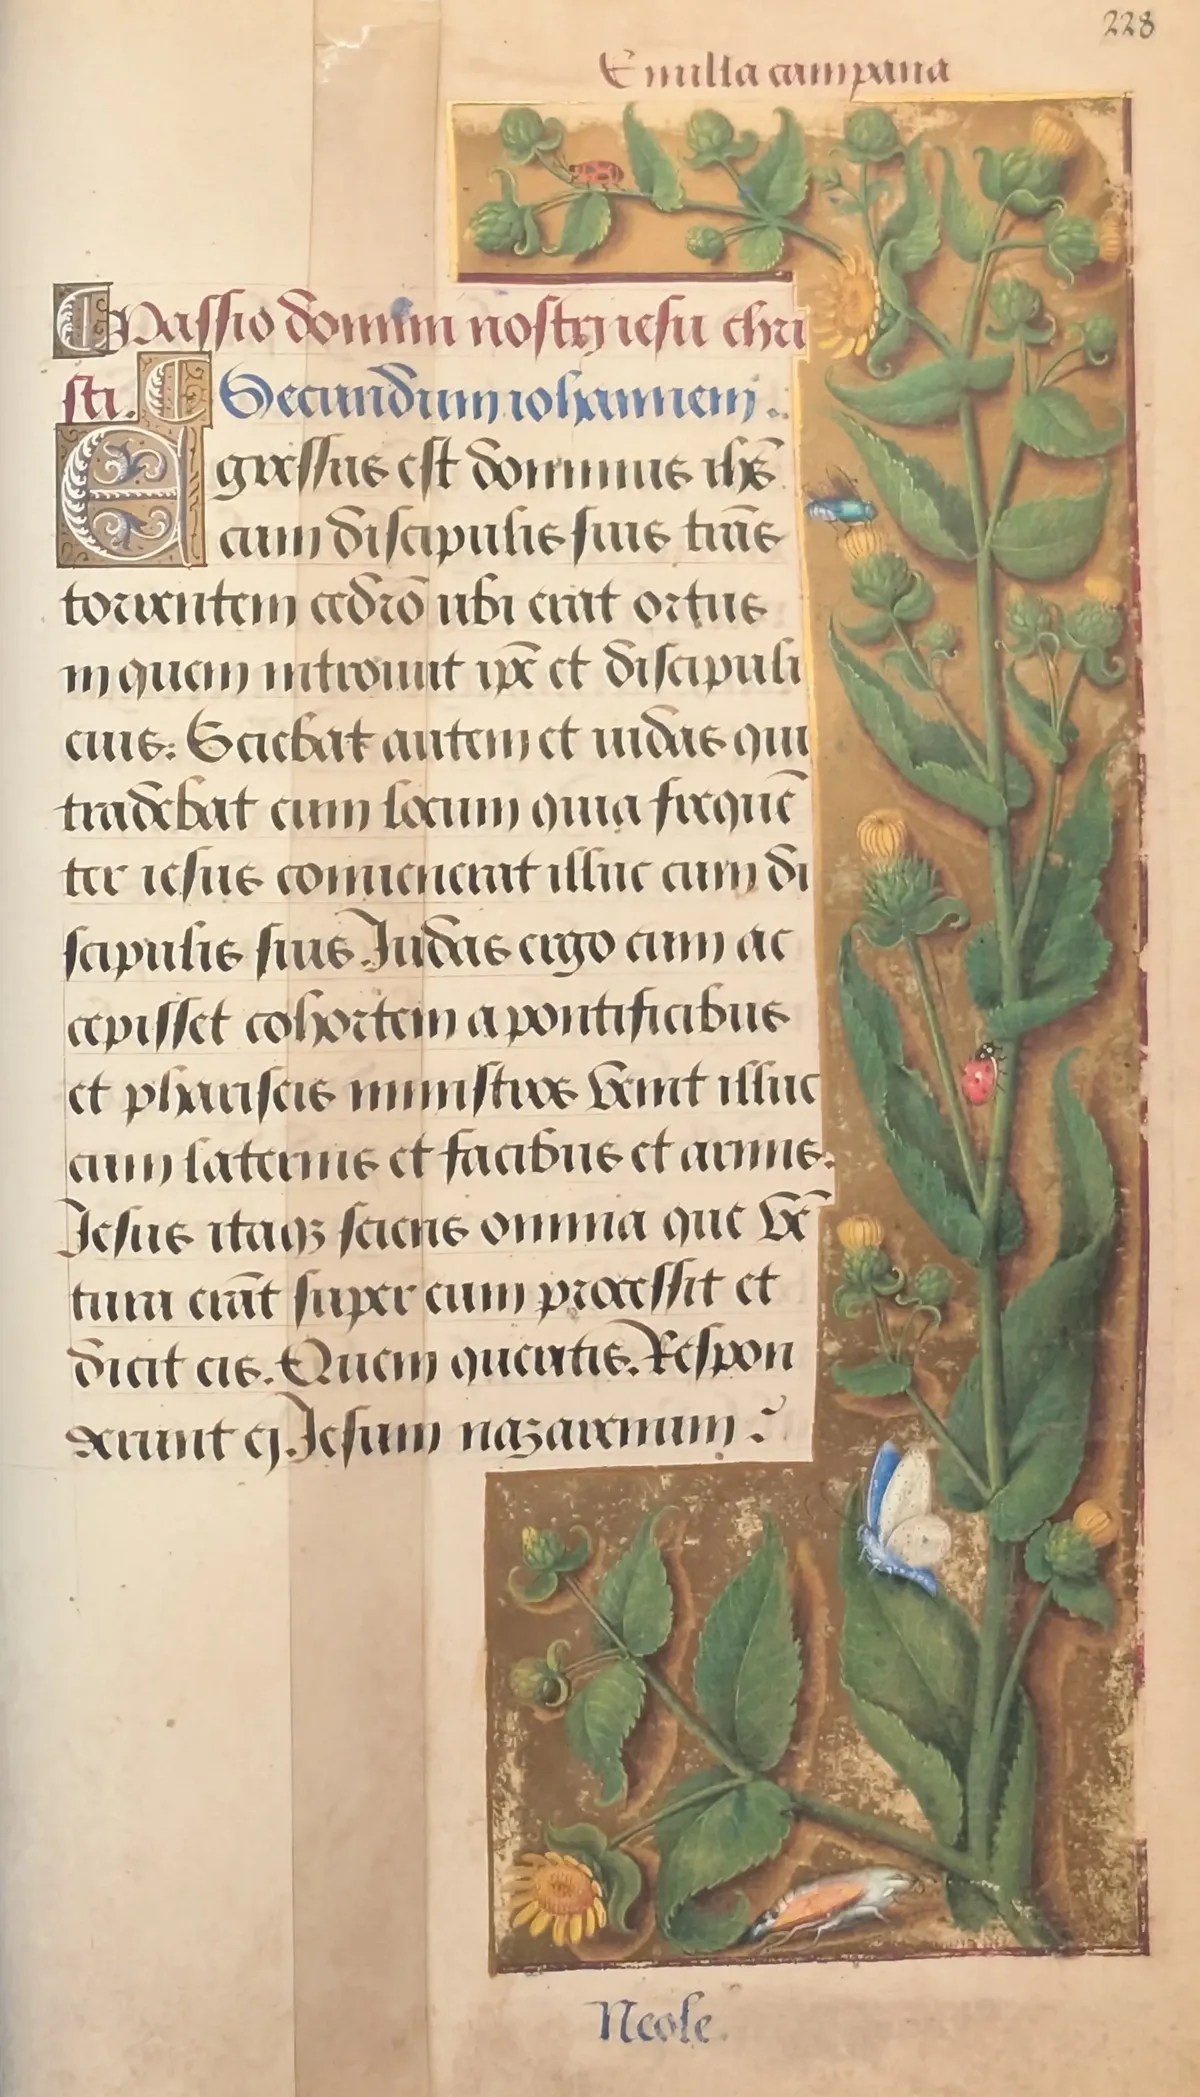 228
Enulla campana
Passio domini nostrj iesu chri
sti. Secundum iohannem.
Egressus est dominus ihs̄
cum discipulis suis trās
torrentem cedrō ubi erat ortus
in quem introiuit ip̄e et discipuli
eius: Sciebat autem et iudas qui
tradebat eum locum quia frequē
ter iesus conuenerat illuc cum di
scipulis suis. Iudas ergo cum ac
cepisset cohortem a pontificibus
et phariseis ministros venit illuc
cum laternis et facibus et armis.
Iesus itaqꝫ sciens omnia que vē
tura erāt super eum processit et
dicit eis. Quem queritis. Respon
derunt ej. Iesum nazarenum:
Neole.